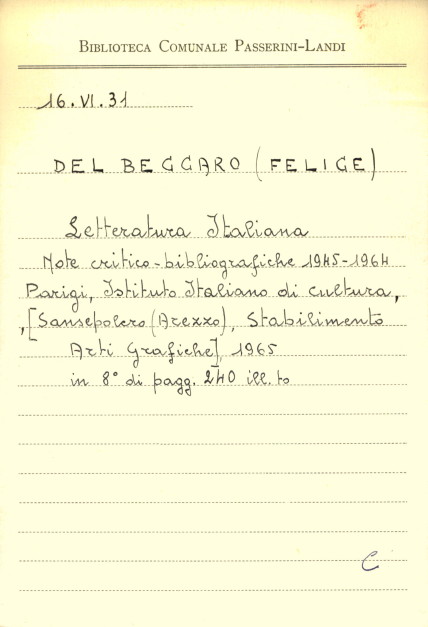 BIBLIOTECA COMUNALE PASSERINI-LANDI
16.VI.31
DEL BECCARO (FELICE)
Letteratura Italiana
Note critico-bibliografiche 1945-1964
Parigi, Istituto Italiano di cultura,
,[Sansepolcro (Arezzo), Stabilimento
Arti Grafiche], 1965
in 8° di pagg. 240 ill.to
C